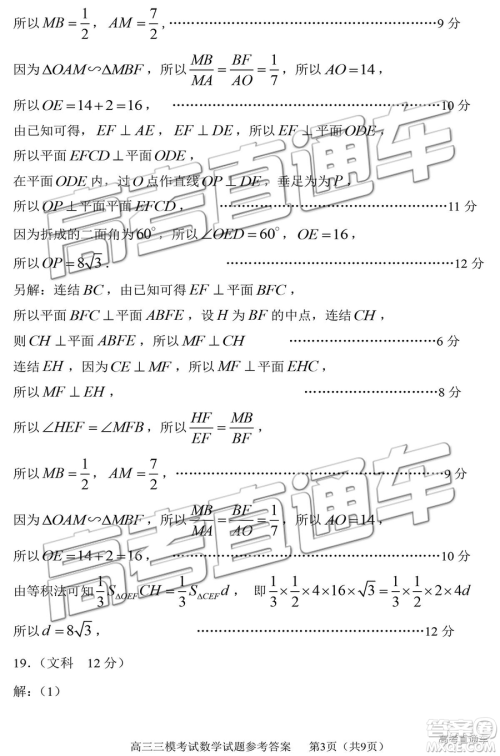 所以 MB = 1/2，AM = 7/2，……………………………………9 分
因为 ΔOAM∽ΔMBF，所以 MB/MA = BF/AO = 1/7，所以 AO = 14，
所以 OE = 14 + 2 = 16，……………………………………10 分
由已知可得，EF ⊥ AE，EF ⊥ DE，所以 EF ⊥ 平面 ODE，
所以平面 EFCD ⊥ 平面 ODE，
在平面 ODE 内，过 O 点作直线 OP ⊥ DE，垂足为为 P，
所以 OP ⊥ 平面平面 EFCD，……………………………………11 分
因为折成的二面角为 60°，所以 ∠OED = 60°，OE = 16，
所以 OP = 8√3．……………………………………12 分
另解：连结 BC，由已知可得 EF ⊥ 平面 BFC，
所以平面 BFC ⊥ 平面 ABFE，设 H 为 BF 的中点，连结 CH，
则 CH ⊥ 平面 ABFE，所以 MF ⊥ CH ……………………………………6 分
连结 EH，因为 CE ⊥ MF，所以 MF ⊥ 平面 EHC，
所以 MF ⊥ EH，……………………………………8 分
所以 ∠HEF = ∠MFB，所以 HF/EF = MB/BF，
所以 MB = 1/2，AM = 7/2，……………………………………9 分
因为 ΔOAM∽ΔMBF，所以 MB/MA = BF/AO = 1/7，所以 AO = 14，
所以 OE = 14 + 2 = 16，……………………………………10 分
由等积法可知 1/3 S_{ΔOEF} CH = 1/3 S_{ΔCEF} d，即 1/3 × 1/2 × 4 × 16 × √3 = 1/3 × 1/2 × 2 × 4d
所以 d = 8√3，……………………………………12 分
19．（文科 12 分）
解：（1）
高三三模考试数学试题参考答案 第3页（共9页）
高考直通车
高考直通车
高考直通车